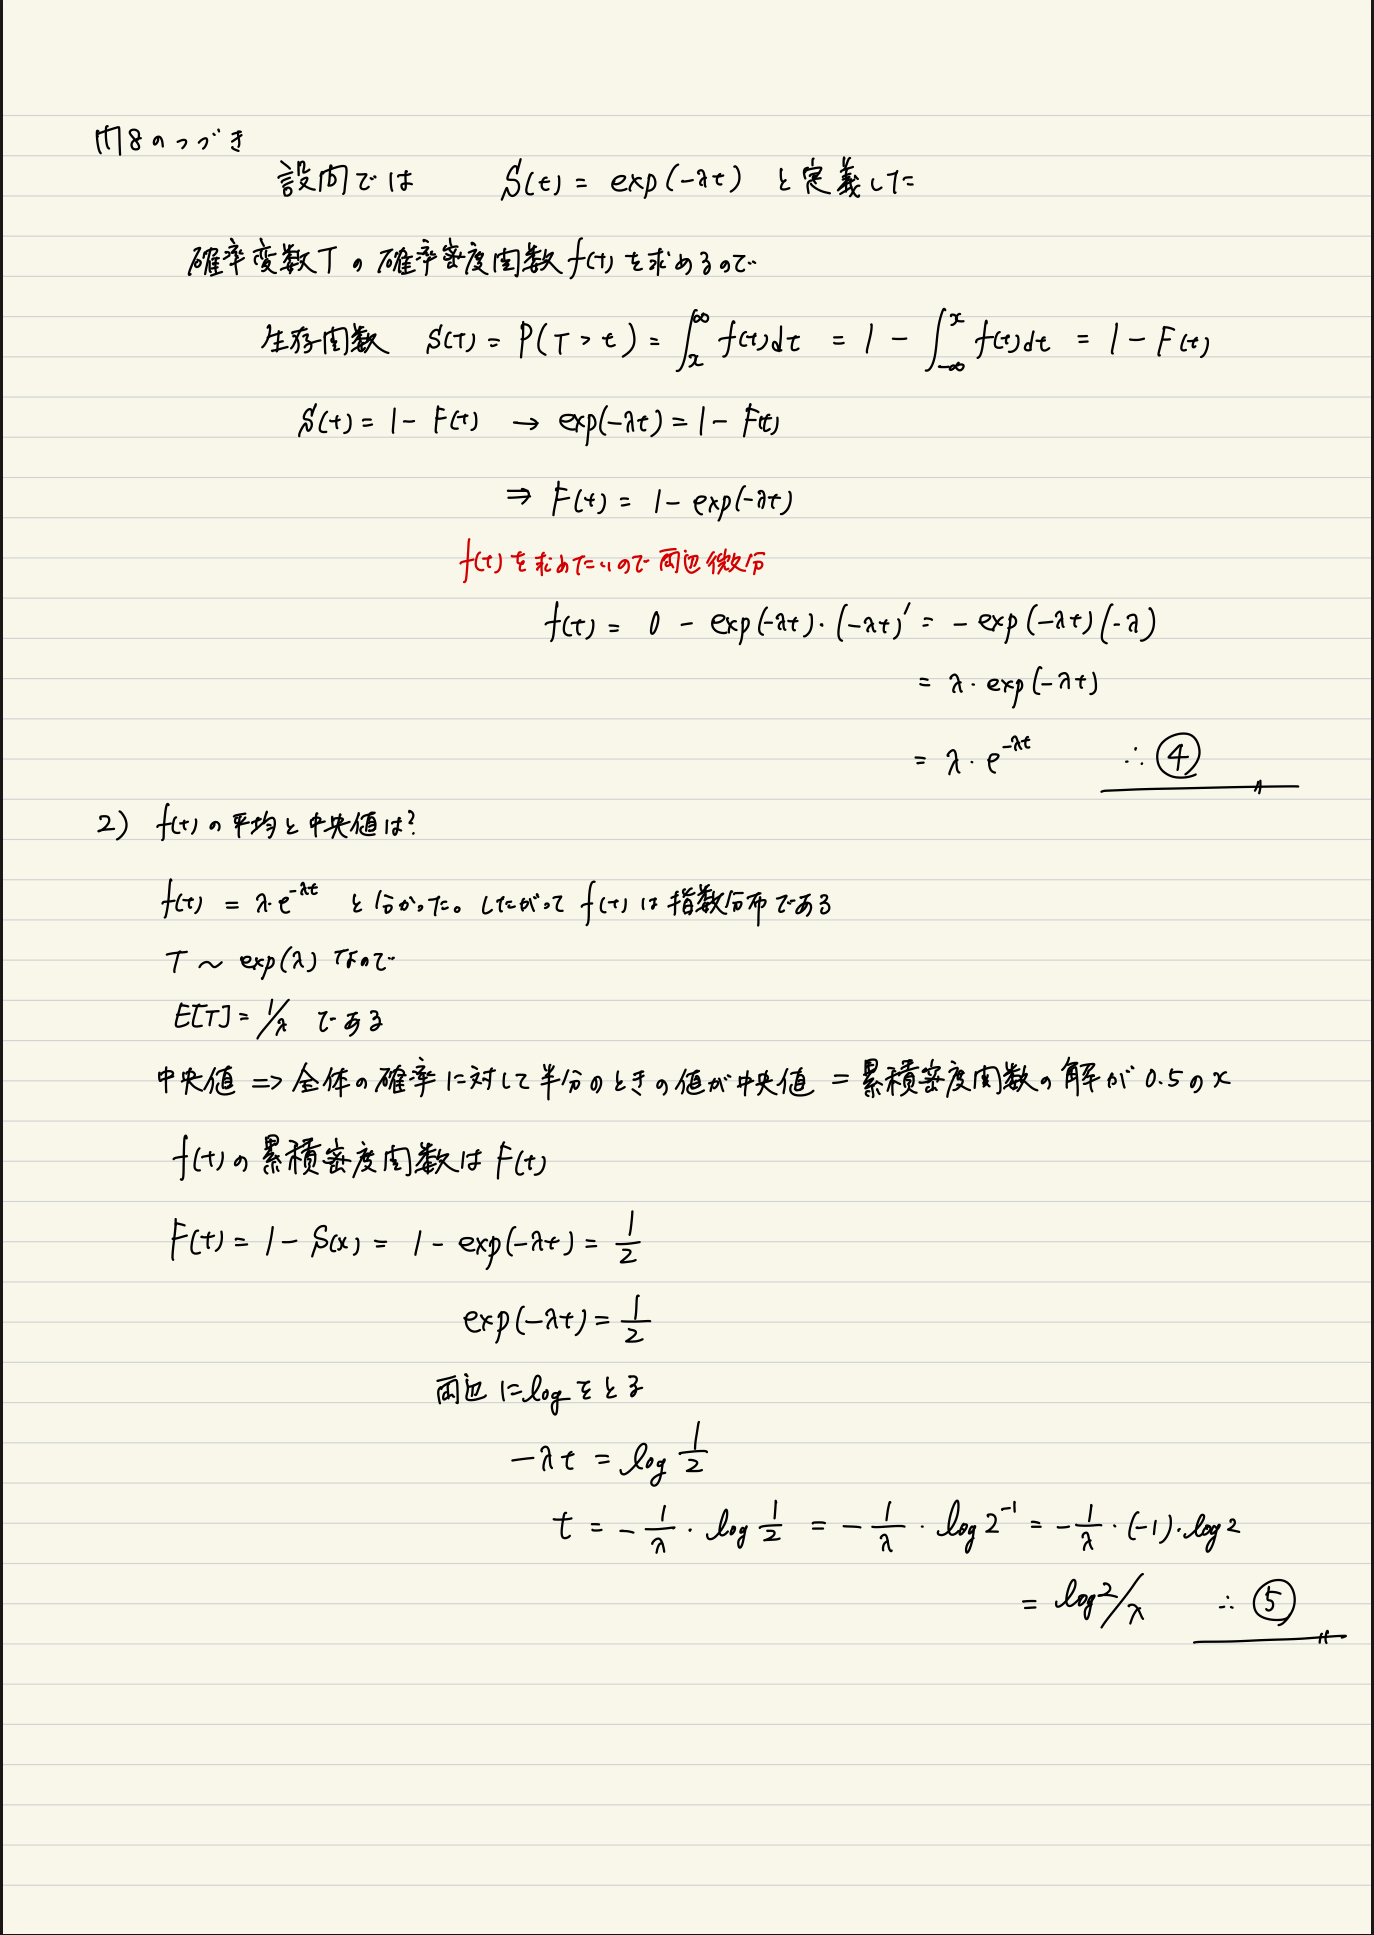 問8のつづき
設問では S(t) = exp(-λt) と定義した
確率変数Tの確率密度関数f(t)を求めるので
生存関数 S(T) = P(T > t) = ∫_x^∞ f(t)dt = 1 - ∫_{-∞}^x f(t)dt = 1 - F(t)
S(t) = 1 - F(t) → exp(-λt) = 1 - F(t)
⇒ F(t) = 1 - exp(-λt)
f(t)を求めたいので両辺微分
f(t) = 0 - exp(-λt)・(-λt)' = - exp(-λt)(-λ)
= λ・exp(-λt)
= λ・e^{-λt} ∴ ④
2) f(t)の平均と中央値は?
f(t) = λ・e^{-λt} と分かった。したがって f(t)は指数分布である
T ~ exp(λ) なので
E[T] = 1/λ である
中央値 => 全体の確率に対して半分のときの値が中央値 = 累積密度関数の解が0.5のx
f(t)の累積密度関数はF(t)
F(t) = 1 - S(x) = 1 - exp(-λt) = 1/2
exp(-λt) = 1/2
両辺にlogをとる
-λt = log 1/2
t = -1/λ・log 1/2 = -1/λ・log2^{-1} = -1/λ・(-1)・log2
= log2/λ ∴ ⑤